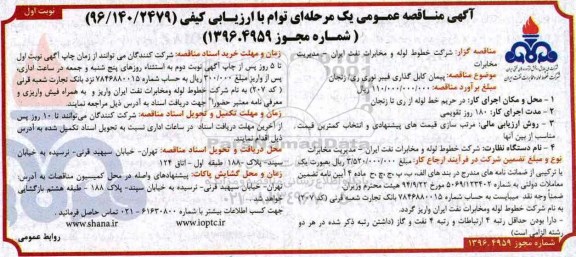 نوبت اول
آگهی مناقصه عمومی یک مرحله‌ای توام با ارزیابی کیفی (۹۶/۱۴۰/۲۴۷۹)
( شماره مجوز ۱۳۹۶.۴۹۵۹ )
مناقصه گزار: شرکت خطوط لوله و مخابرات نفت ایران – مدیریت
مخابرات
موضوع مناقصه: پیمان کابل گذاری فیبر نوری ری/ زنجان
مبلغ برآورد مناقصه: ۱۱۰/۰۰۰/۰۰۰/۰۰۰ ریال
۱ – محل و مکان اجرای کار: در حریم خط لوله از ری تا زنجان
۲ – مدت اجرای کار: ۱۸۰ روز تقویمی
۳ – روش ارزیابی مالی: مرتب سازی قیمت های پیشنهادی و انتخاب کمترین قیمت.
مناسب از بین آنها
۴ – نام دستگاه نظارت: شرکت خطوط لوله و مخابرات نفت ایران – مدیریت مخابرات
نوع و مبلغ تضمین شرکت در فرآیند ارجاع کار: مبلغ ۳/۵۲۰/۰۰۰/۰۰۰ ریال بصورت یک
یا ترکیبی از ضمانت نامه های مندرج در بندهای الف، ب، پ، ج، چ، ح، ماده ۴ آیین نامه تضمین
معاملات دولتی به شماره ۱۲۳۴۰۲/ت۵۰۶۵۹ه مورخ ۹۴/۹/۲۲ هیئت محترم وزیران
ضمناً وجه نقد میبایست به حساب شماره ۷۸۴۶۸۸۰۰۱۵ بانک تجارت شعبه قرنی (کد ۲۰۷)
به نام شرکت خطوط لوله ومخابرات نفت ایران واریز گردد.
– دارا بودن حداقل رتبه ۴ ارتباطات و رتبه ۴ نفت و گاز (داشتن رتبه ذکر شده در هر دو
رشته الزامی است)
شماره مجوز ۱۳۹۶.۴۹۵۹
زمان و مهلت خرید اسناد مناقصه: شرکت کنندگان می توانند از زمان چاپ آگهی نوبت اول
تا ۵ روز پس از چاپ آگهی نوبت دوم به استثناء روزهای پنج شنبه و جمعه در ساعات اداری،
پس از واریز مبلغ ۳۰۰/۰۰۰ ریال به حساب شماره ۷۸۴۶۸۸۰۰۱۵ نزد بانک تجارت شعبه قرنی
( کد ۲۰۷) به نام شرکت خطوط لوله ومخابرات نفت ایران واریز و به همراه فیش واریزی و
معرفی نامه معتبر حضوراً جهت دریافت اسناد به آدرس ذیل مراجعه نمایند.
زمان و مهلت تکمیل و تحویل اسناد مناقصه: شرکت کنندگان می‌توانند تا ۱۰ روز پس
از آخرین مهلت دریافت اسناد در ساعات اداری نسبت به تحویل اسناد تکمیل شده به آدرس
ذیل اقدام نمایند.
محل دریافت و تحویل اسناد مناقصه: تهران- خیابان سپهبد قرنی- نرسیده به خیابان
سپند- پلاک ۱۸۸- طبقه اول – اتاق ۱۲۴
زمان و محل گشایش پاکات: پیشنهادهای واصله در محل کمیسیون مناقصات به آدرس:
تهران- خیابان سپهبد قرنی- نرسیده به خیابان سپند- پلاک ۱۸۸ – طبقه هشتم بازگشایی
خواهد شد.
جهت کسب اطلاعات بیشتر با شماره ۶۱۶۳۰۸۰۰ – ۰۲۱ تماس حاصل فرمائید .
www.shana.ir www.ioptc.ir
روابط عمومی